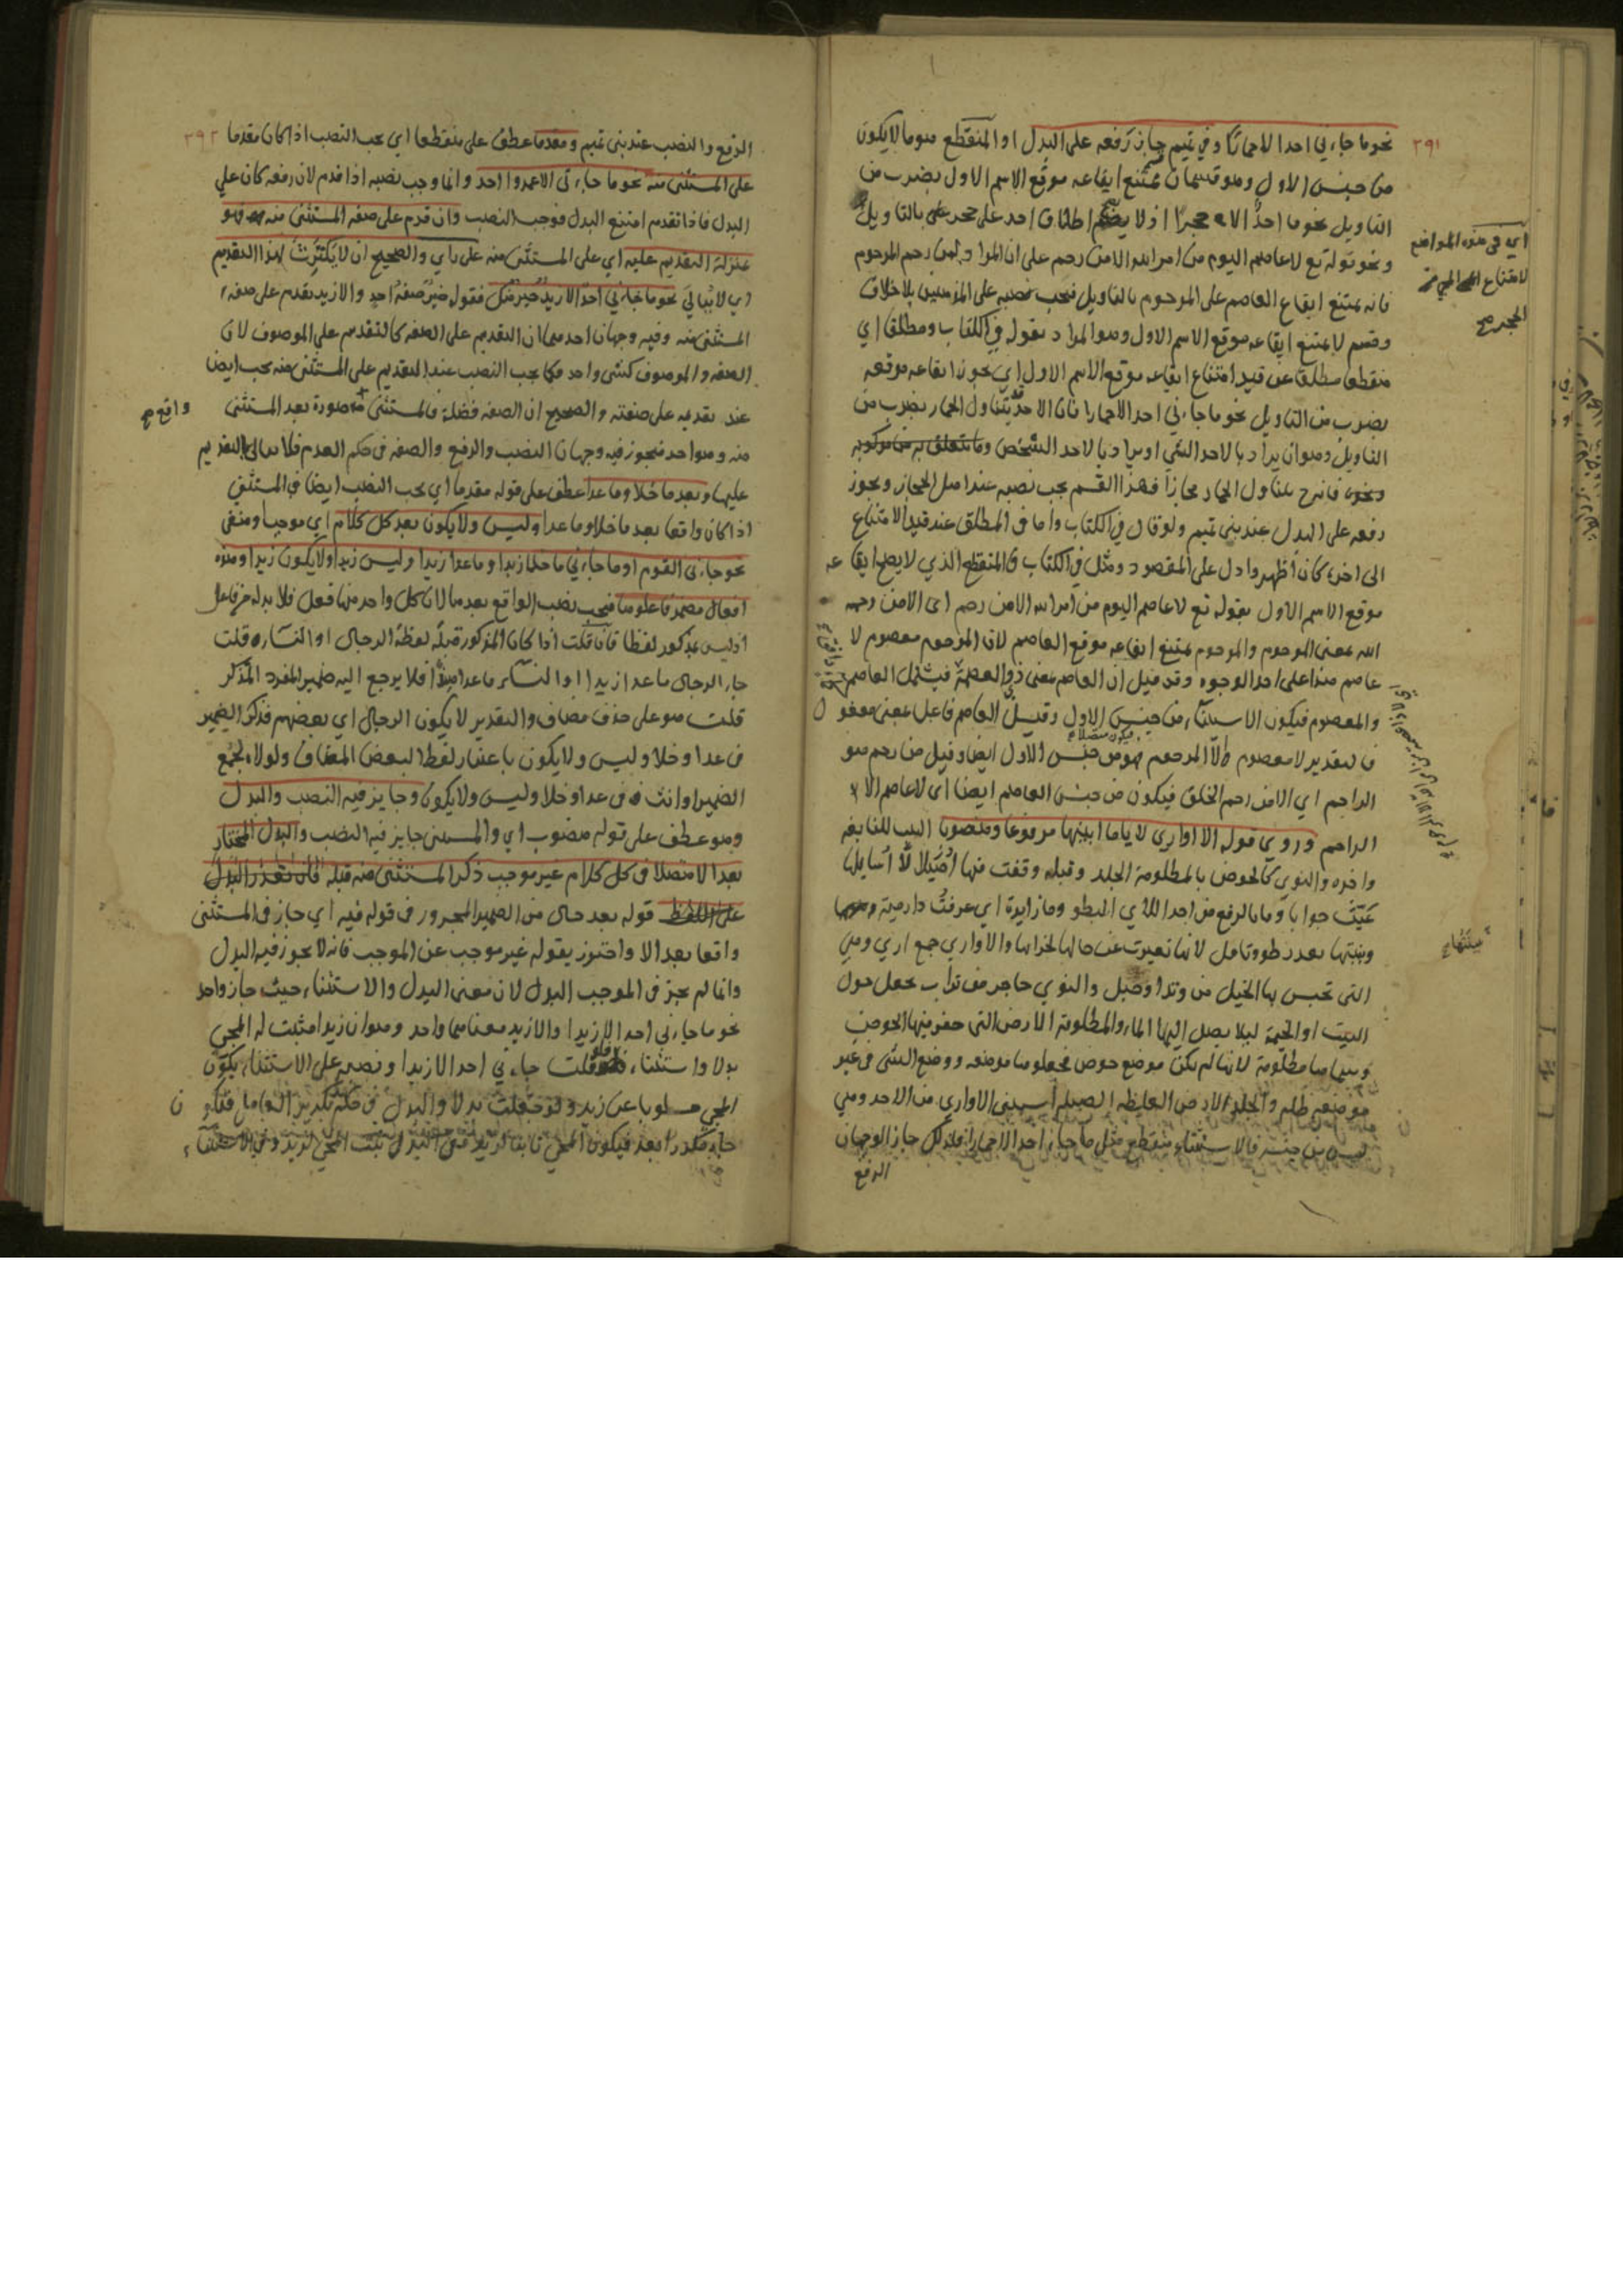 ٣٩١
نحو ما جاءني احد الا حمارًا وفي تميم جاز رفعه على البدل او المنقطع هو ما لا يكون
من جنس الاول وهو قسمان قسم يمتنع ايقاعه موقع الاسم الاول بضرب من
التاويل نحو ما احدٌ الا حجرا اذ لا يصح اطلاق احد على حجر بالتاويل
ونحو قوله تع لا عاصم اليوم من امر الله الا من رحم على ان المراد بمن رحم المرحوم
فانه يمتنع ايقاع العاصم على المرحوم بالتاويل فيجب نصبه على المذهبين بلا خلاف
وقسم لا يمتنع ايقاعه موقع الاسم الاول وهو المراد بقوله في الكتاب ومطلقا اي
منقطعا مطلقا عن قيد امتناع ايقاعه موقع الاسم الاول اي يجوز ايقاعه موقعه
بضرب من التاويل نحو ما جاءني احد الا حمارا فان الاحد يتناول الحمار بضرب من
التاويل وهو ان يراد بالاحد الشي او يراد بالاحد الشخص وما يتعلق به من مركوبه
ونحوه فانه ح يتناول الحمار مجازا فهذا القسم يجب نصبه عند اهل الحجاز ويجوز
رفعه على البدل عند بني تميم ولو قال في الكتاب واما في المطلق عند قيد الامتناع
الى اخره كان اظهر وادل على المقصود ومثل في الكتاب في المنقطع الذي لا يصح ايقاعه
موقع الاسم الاول بقوله تع لا عاصم اليوم من امر الله الا من رحم اي الا من رحمه
الله بمعنى المرحوم والمرحوم يمتنع ايقاعه موقع العاصم لان المرحوم معصوم لا
عاصم هذا على احد الوجوه وقد قيل ان العاصم بمعنى ذو العصمة فيشمل العاصم
والمعصوم فيكون الاستثناء من جنس الاول وقيل ان العاصم فاعل بمعنى مفعول
فالتقدير لا معصوم الا المرحوم فهو من جنس الاول ايضا وقيل من رحم هو
الراحم اي الا من رحم الخلق فيكون من جنس العاصم ايضا اي لا عاصم الا
الراحم وروي قوله الا اواري لأيا ما ابينها مرفوعا ومنصوبا البيت للنابغه
واخره والنوي كالحوض بالمظلومة الجلد وقبله وقفت فيها اصيلالا اسايلها
عيّت جوابا وما بالربع من احد اللاي البطو وما زايدة اي عرفت دار مية
وبينتها بعد بطو وتامل لانها تغيرت عن حالها لخرابها والاواري جمع اري وهي
التي تحبس بها الخيل من وتد او حبل والنوي حاجز من تراب يجعل حول
البيت او الخيمة ليلا يصل اليها الماء والمظلومة الارض التي حفر فيها الحوض
وسماها مظلومة لانها لم تكن موضع حوض فجعلوها موضعه ووضع الشي في غير
موضعه ظلم والجلد الارض الغليظه الصلبه استثنى الاواري من الاحد وهي
ليس من جنسه فالاستثناء منقطع مثل ما جاز احد الا حمارا فلذلك جاز الوجهان
الرفع
اي في هذه المواضع
لامتناع المجي
الحجر صح
فيكون متصلا
٣٩٢
الرفع والنصب عند بني تميم ومقدما عطف على منقطعا اي يجب النصب اذا كان مقدما
على المستثنى منه نحو ما جاءني الا عمروا احد وانما وجب نصبه اذا قدم لان رفعه كان على
البدل فاذا تقدم امتنع البدل فوجب النصب وان قدم على صفه المستثنى منه فهو
بمنزلة التقديم عليه اي على المستثنى منه على راي والصحيح ان لا يكترث لهذا التقديم
اي لا يبالي نحو ما جاءني احد الا زيد خير منك فقوله خير صفه احد والا زيد تقدم على صفه
المستثنى منه وفيه وجهان احدهما ان التقديم على الصفه كالتقديم على الموصوف لان
الصفه والموصوف كشي واحد فكما يجب النصب عند التقديم على المستثنى منه يجب ايضا
عند تقديمه على صفته والصحيح ان الصفه فضلة فالمستثنى صورة بعد المستثنى
منه وهو احد فيجوز فيه وجهان النصب والرفع والصفه في حكم العدم فلا يبالي بالتقديم
عليها وبعد ما خلا وما عدا عطف على قوله مقدما اي يجب النصب ايضا في المستثنى
اذا كان واقعا بعد ما خلا وما عدا وليس ولا يكون بعد كل كلام اي موجبا ومنفي
نحو جاءني القوم او ما جاءني ما خلا زيدا وما عدا زيدا وليس زيدا ولا يكون زيدا وهذه
افعال مضمر فاعلوها فيجب نصب الواقع بعدها لان كل واحد منها فعل فلا بد له من فاعل
اذ ليس بمذكور لفظا فان قلت اذا كان المذكور قبله لفظة الرجال او النساء قلت
جاء الرجال ما عدا زيدا او النساء ما عدا هندا فلا يرجع اليه ضمير المفرد المذكر
قلت هو على حذف مضاف والتقدير لا يكون الرجال اي بعضهم فذكر الضمير
في عدا وخلا وليس ولا يكون باعتبار لفظ البعض المضاف ولولاه لجمع
الضمير او انث في عدا وخلا وليس ولا يكون وجايز فيه النصب والبدل
وهو عطف على قوله منصوب اي والمستثنى جايز فيه النصب والبدل المختار
بعد الا متصلا في كل كلام غير موجب ذكر المستثنى منه قبله فان تعذر البدل
على اللفظ قوله بعد حال من الضمير المجرور في قوله فيه اي جاز في المستثنى
واقعا بعد الا واحترز بقوله غير موجب عن الموجب فانه لا يجوز فيه البدل
وانما لم يجز في الموجب البدل لان معنى البدل والاستثناء حيث جاز واحد
نحو ما جاءني احد الا زيدا والا زيد معناهما واحد وهو ان زيدا مثبت له المجي
بدلا واستثناء فلو قلت جاءني احد الا زيدا ونصبه على الاستثناء يكون
المجي مسلوبا عن زيد ولو جعلت بدلا والبدل في حكم تكرير العامل فيكون
جاء مكررا بعد فيكون المجي ثابتا لزيد ففي البدل يثبت المجي لزيد وفي الاستثناء
واقع صح